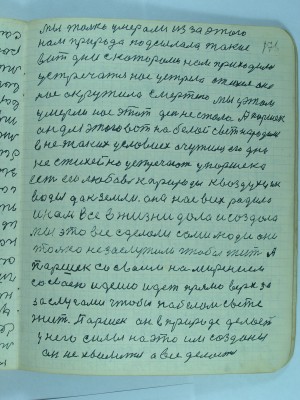 мы только умерали из за этого
нам природа подсылала такие
вит дни с которами нам приходилос
устречатся нас устреча
нас окружила смертью мы этом
умерли нас этот ден не стало. А паршек
он дел этого вот на белой свет народился
в не таких условиях служит его дня
не стихейно устречают у паршека
ест его любов к природы к воздуху к
воды да к земли. она нас всех радила
и нам все в жизни дала и создала
мы это все сделали сами люди они
только не заслужили чтобы жит. А
паршек со своим намерением
со своею идеею идет прямо верх за
заслугами чтобы на белом свете
жит. Паршек он в природе делает
у него силы на это им созданы
он не хвалится а все делает